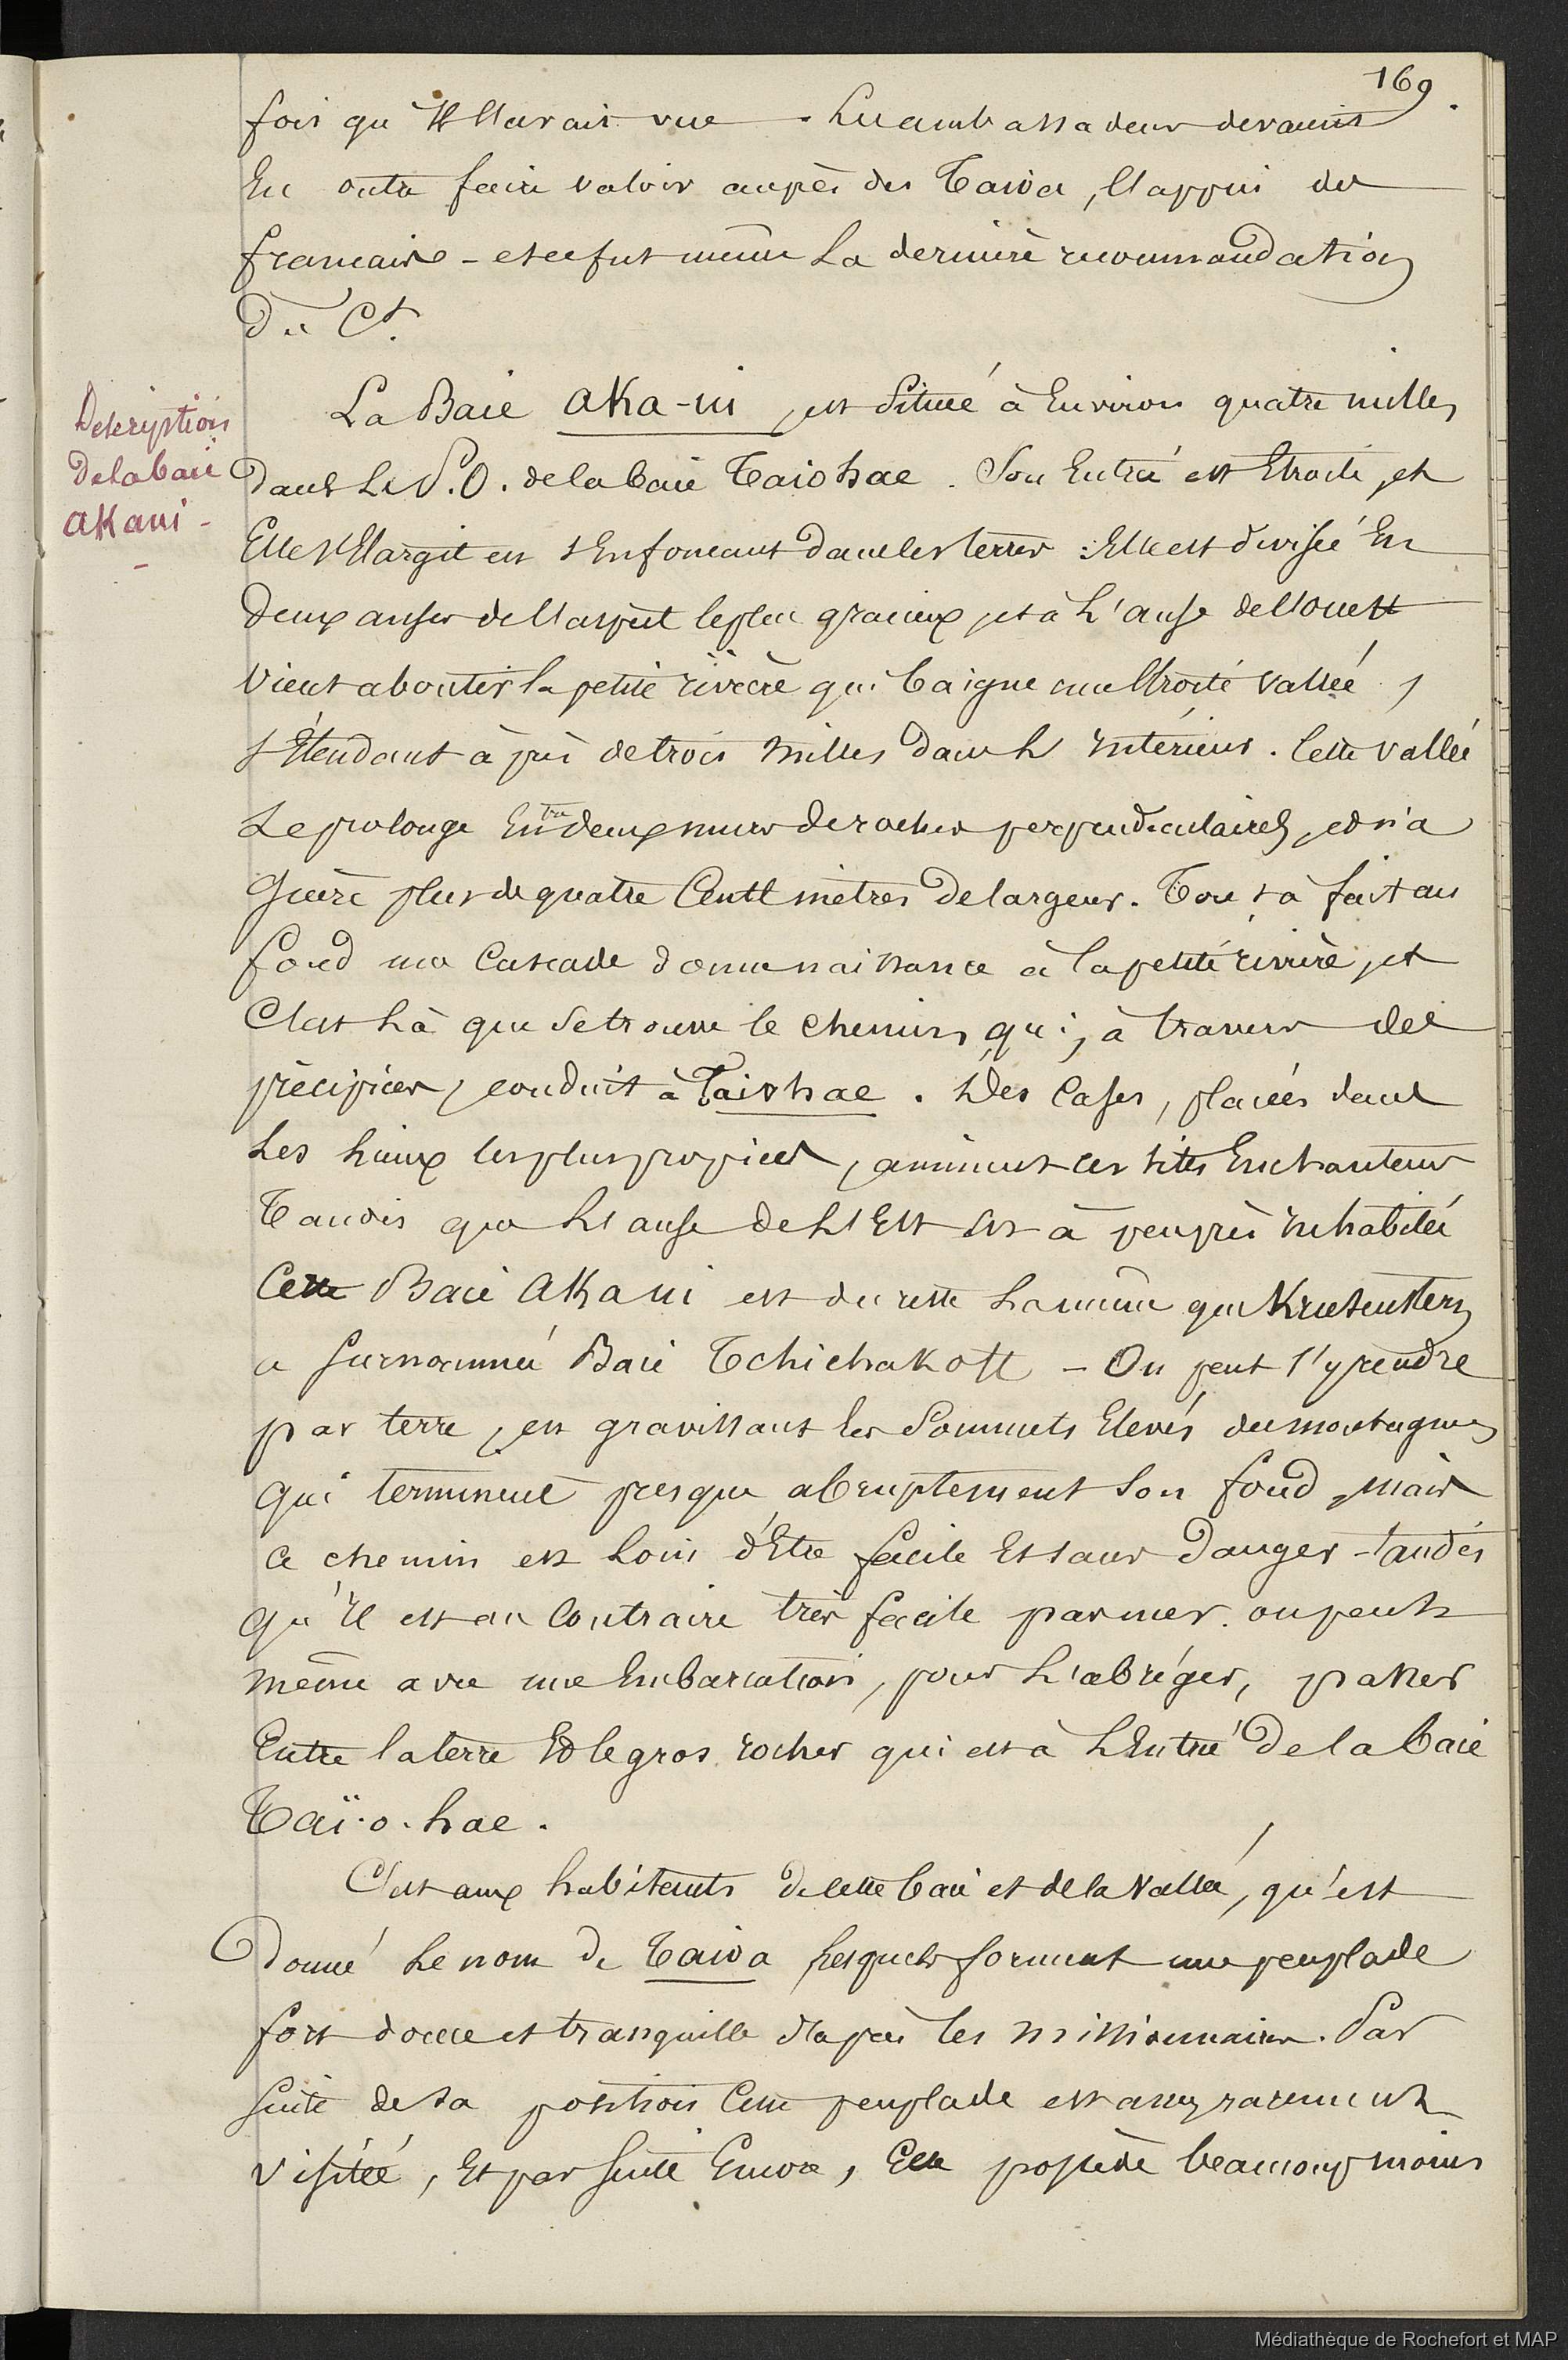 169.
fois qu'Il l'avait vue. Les ambassadeurs devaient
En outre faire valoir auprès des Taioa, l'appui des
français – et ce fut même La dernière recommandation
Du Ct.
Description
De la baie
Akani -
La Baie Aka-ni, est Située à Environ quatre milles
Dans Le S.O. de la baie Taiohae. Son Entrée est Etroite, et
Elle s'Elargit en s'Enfoncant dans les terres : Elle est divisée En
Deux anses de l'aspect le plus gracieux, et à L'anse de l'ouest
Vient aboutir la petite rivière qui baigne une Etroite vallée,
s'Etendant à près de trois milles dans L'intérieur. Cette vallée
se prolonge Entre deux murs de roches perpendiculaires, et n'a
Guère plus de quatre Cents mètres de largeur. Tout à fait au
fond une Cascade donne naissance à la petite rivière, et
C'est Là que se trouve le chemin, qui, à travers des
précipices, conduit à Taiohae. Des Cases, placées dans
Les Lieux les plus propices, animent ces sites Enchanteurs
Tandis que L'anse de L'Est Est à peu près inhabitée
Cette Baie Akani est du reste La même que Krusenstern
a surnommée Baie Tchichakoff – On peut s'y rendre
par terre, en gravissant les Sommets Elevés des montagnes
qui terminent presque abruptement son fond, mais
ce chemin est Loin d'Etre facile Et sans Danger – tandis
qu'Il est au Contraire très facile par mer. on peut
même avec une Embarcation, pour L'abréger, passer
Entre la terre Et le gros rocher qui est à L'Entrée De la baie
Taï-o-hae.
C'est aux habitants De cette baie et de la Vallée, qu'est
Donné Le nom de Taioa lesquels forment une peuplade
fort douce et tranquille d'après les missionnaires. Par
suite de sa position Cette peuplade est assez rarement
visitée, Et par suite Encore, Elle possède beaucoup moins
Médiathèque de Rochefort et MAP